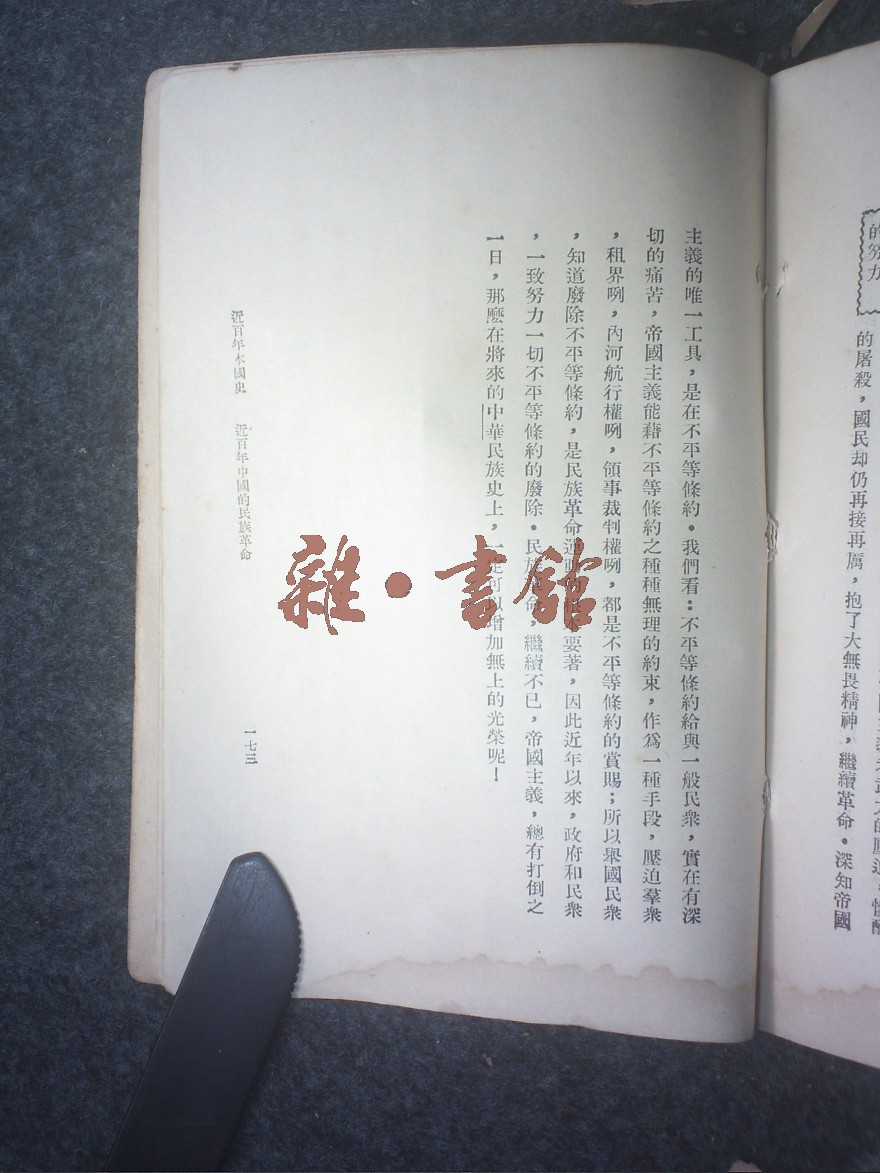 的努力
的屠殺，國民却仍再接再厲，抱了大無畏精神，繼續革命。深知帝國
主義的唯一工具，是在不平等條約。我們看：不平等條約給與一般民衆，實在有深
切的痛苦，帝國主義能藉不平等條約之種種無理的約束，作爲一種手段，壓迫羣衆
，租界咧，內河航行權咧，領事裁判權咧，都是不平等條約的賞賜；所以舉國民衆
，知道廢除不平等條約，是民族革命運動的要著，因此近年以來，政府和民衆
，一致努力一切不平等條約的廢除。民族革命，繼續不已，帝國主義，總有打倒之
一日，那麼在將來的中華民族史上，一定可以增加無上的光榮呢！
近百年本國史 近百年中國的民族革命
一七三
雜·書館